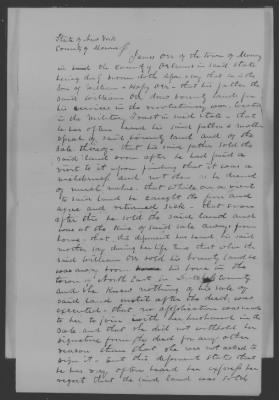 State of New York
County of
James Orr of the town of
in said the County of Orleans in said State
being duly sworn doth depose and say that he is the
son of William & Mary Orr. that his father the
said William Orr drew bounty land for
his services in the revolutionary war. located
in the Military Tract in said State - that
he has often heard his said father & mother
speak of said bounty land and of the
sale thereof - that his said father sold the
said land soon after he had paid a
visit to it upon finding that it was a
wilderness and not then as he deemed
of much value. that while on a visit
to said land he caught the fever and
ague and returned sick - that soon
after this he sold the said land and
was at the time of said sale away from
home - that this deponent has heard his said
mother say during her life time that when the
said William Orr sold his bounty land he
was away from home his home in the
town of North East in County
and she knew nothing of his sale of
said land until after the deed was
executed - that no application was made
to her to join with her husband in the
sale and that she did not withhold her
signature from the deed for any other
reason than that she was not asked to
sign it - But this deponent states that
he has very often heard her express her
regret that the said land was sold